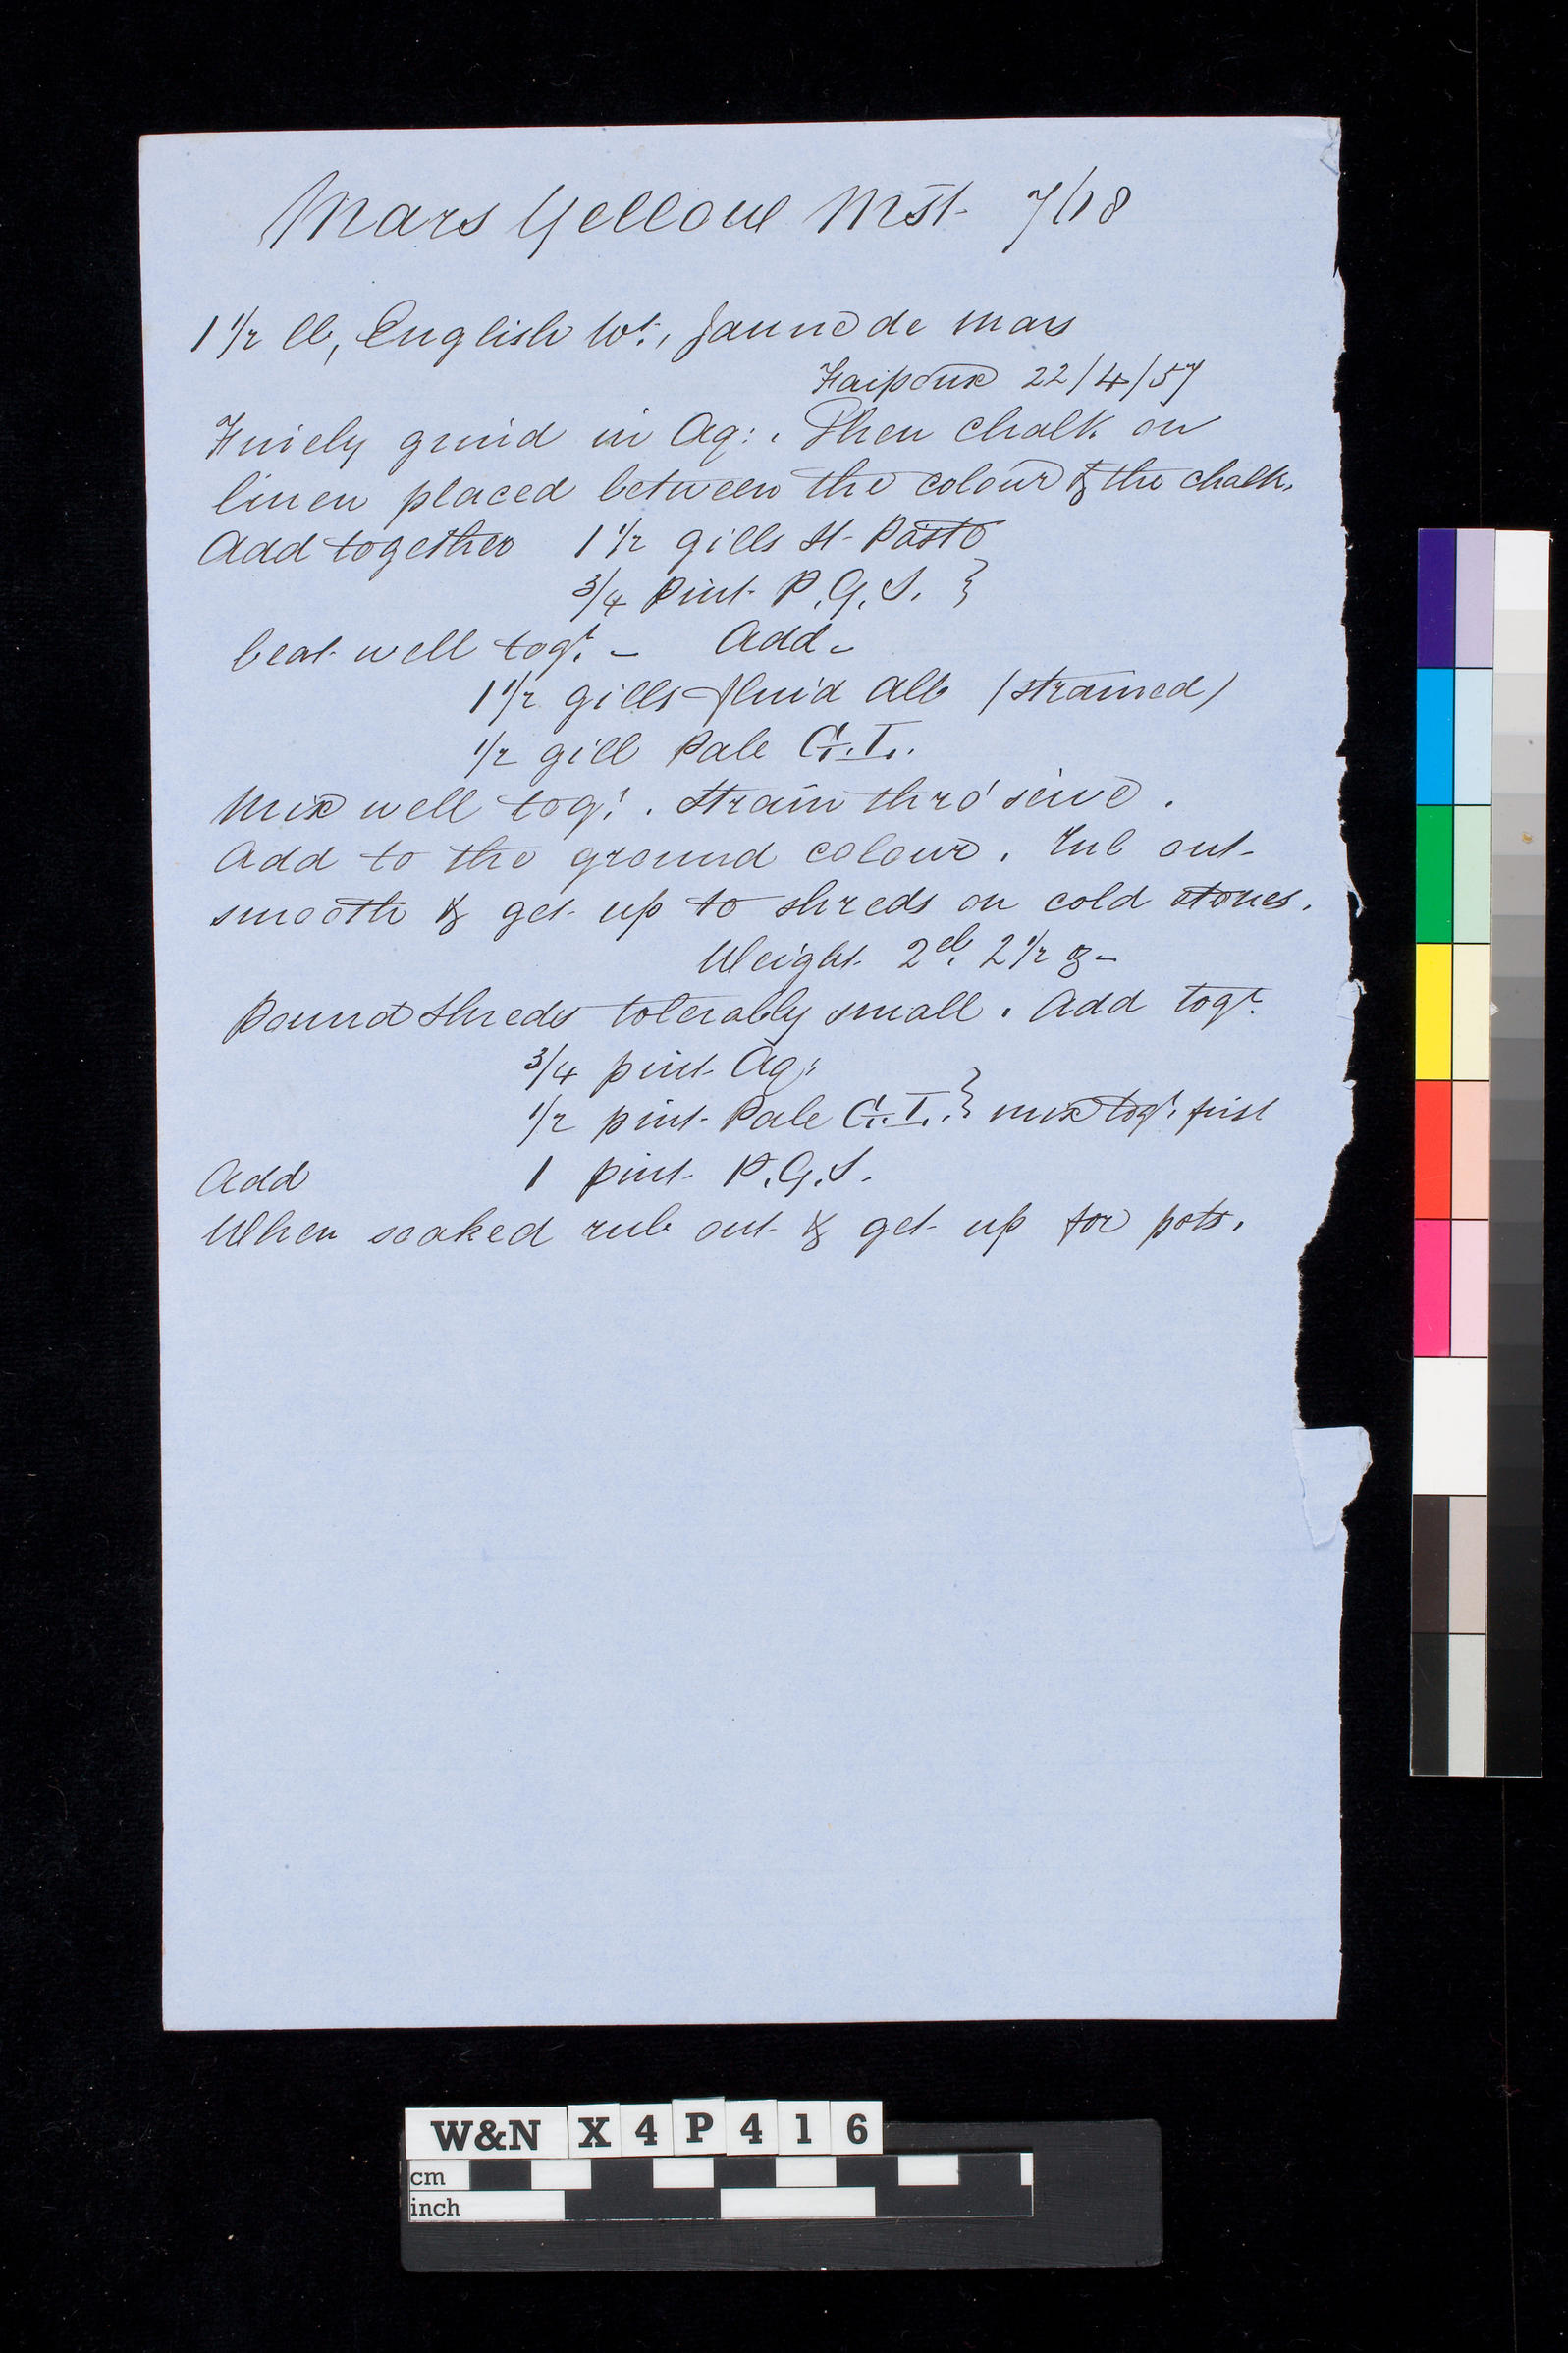 Mars Yellow Mst. 7/18
1 1/2 lb, English Wt., Jaune de Mars
22/4/57
Finely grind in Aq: . Then chalk on
linen placed between the colour & the chalk.
Add together 1 1/2 gills St. Paste
3/4 pint P.G.S. }
beat well togr. – Add –
1 1/2 gills fluid Alb (strained)
1/2 gill Pale G.T..
Mix well togr. . Strain thro' seive .
Add to the ground colour . Rub out
smooth & get up to shreds on cold stones.
Weight 2 lb. 2 1/2 oz –
Pound shreds tolerably small . Add togr.
3/4 pint Aq:
1/2 pint Pale G.T.. } mix togr. first
Add 1 pint P.G.S.
When soaked rub out & get up for pots.
W&N X4P416
cm
inch